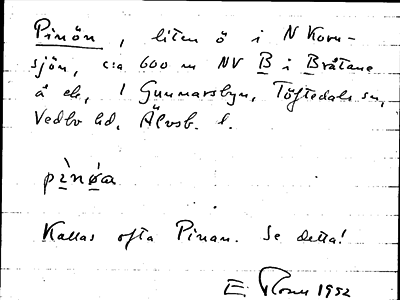 Pinön, liten ö i N Korn-
sjön, c:a 600 m NV B i Bråtane
å ek, 1 Gunnarsbyn, Töftedals sn,
Vedbo hd, Älvsb. l.
pìnøa
Kallas ofta Pinan. Se detta!
E. 1952